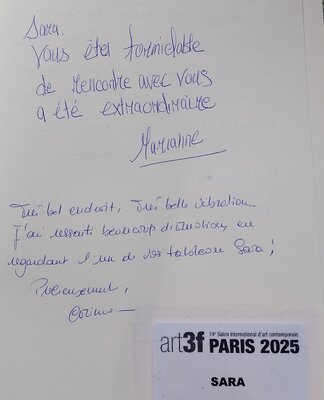 Sara.
Vous êtes formidable
de rencontre avec vous
a été extraordinaire
Marianne
Très bel endroit, Très belle vibration
J'ai ressenti beaucoup d'émotions en
regardant l'un de vos tableau Sara !
Précieusement,
Corinne
14e Salon international d'art contemporain
art3f PARIS 2025
SARA